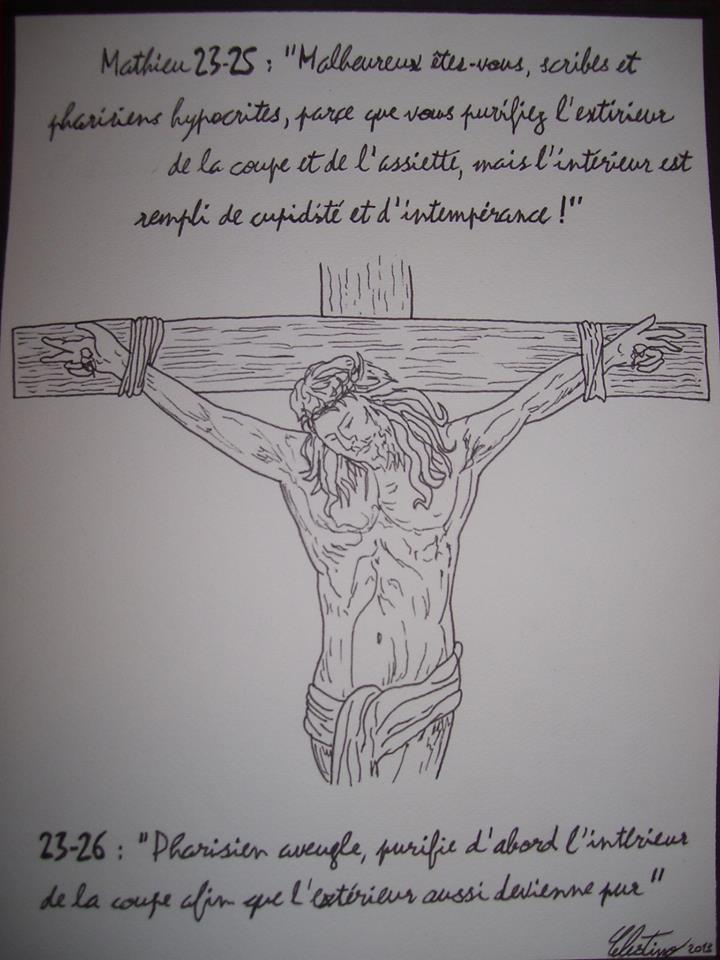 Mathieu 23-25 : "Malheureux êtes-vous, scribes et
pharisiens hypocrites, parce que vous purifiez l'extérieur
de la coupe et de l'assiette, mais l'intérieur est
rempli de cupidité et d'intempérance !"
23-26 : "Pharisien aveugle, purifie d'abord l'intérieur
de la coupe afin que l'extérieur aussi devienne pur"
Celestino 2013